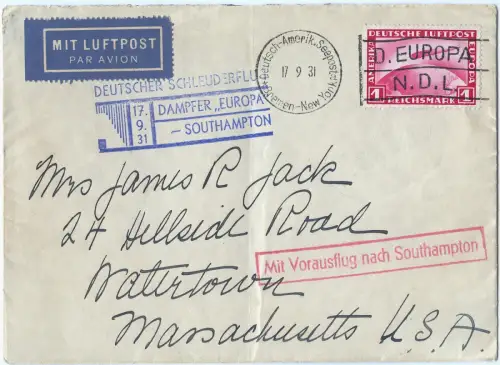 MIT LUFTPOST
PAR AVION
DEUTSCHER SCHLEUDERFLUG
17.
9.
31
DAMPFER „EUROPA"
— SOUTHAMPTON
Deutsch-Amerik. Seepost
Bremen-New York
17 9 31
DEUTSCHE LUFTPOST
AMERIKA
EUROPA
1 REICHSMARK 1
D. EUROPA
N.D.L.
Mrs James R Jack
24 Hillside Road
Watertown
Massachusetts U.S.A.
Mit Vorausflug nach Southampton